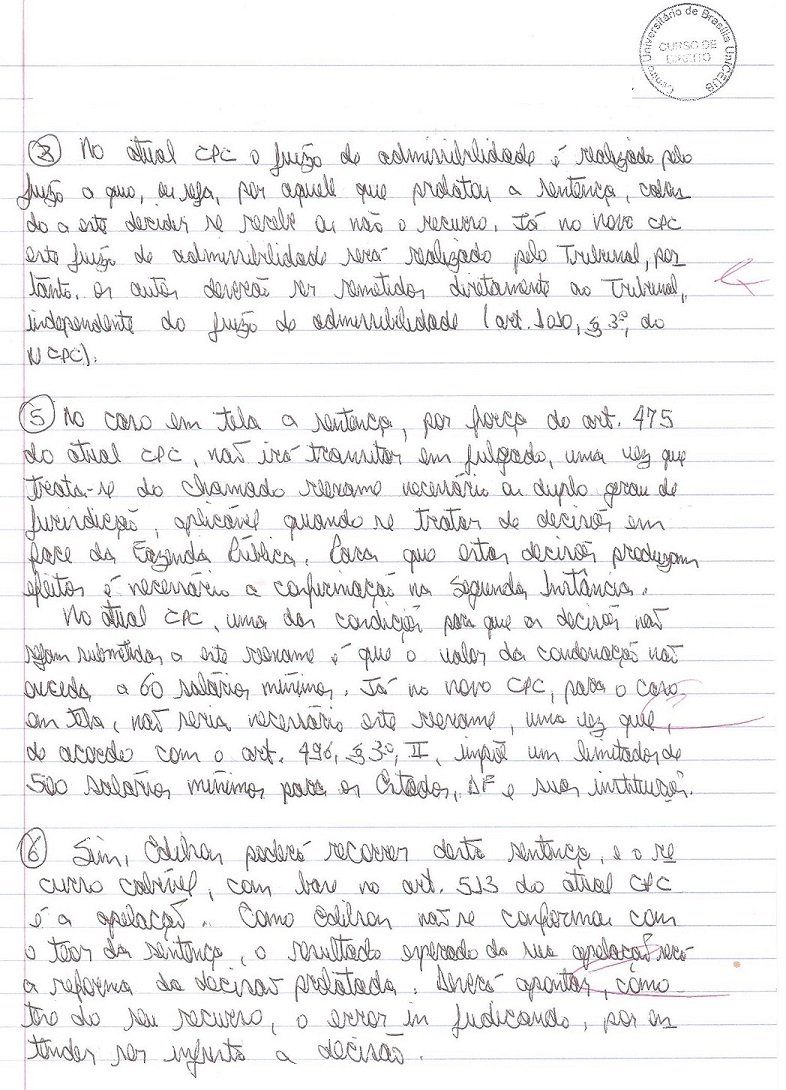 Centro Universitário de Brasília UniCEUB
CURSO DE
DIREITO
3 No atual CPC o juízo de admissibilidade é realizado pelo
juízo a quo, ou seja, por aquele que prolatou a sentença, caben
do a este decidir se recebe ou não o recurso. Já no novo CPC
este juízo de admissibilidade será realizado pelo Tribunal, por
tanto, os autos deverão ser remetidos diretamente ao Tribunal,
independente do juízo de admissibilidade (art. 1010, § 3º, do
NCPC).
5 No caso em tela a sentença, por força do art. 475
do atual CPC, não irá transitar em julgado, uma vez que
trata-se do chamado reexame necessário ou duplo grau de
jurisdição, aplicável quando se tratar de decisões em
face da Fazenda Pública. Para que estas decisões produzam
efeitos é necessário a confirmação na Segunda Instância.
No atual CPC, uma das condições para que as decisões não
sejam submetidas a este reexame é que o valor da condenação não
exceda a 60 salários mínimos. Já no novo CPC, para o caso
em tela, não seria necessário este reexame, uma vez que,
de acordo com o art. 496, § 3º, II, impõe um limitador de
500 salários mínimos para os Estados, DF e suas instituições.
6 Sim, Edilson poderá recorrer desta sentença, e o re
curso cabível, com base no art. 513 do atual CPC
é a apelação. Como Edilson não se conformou com
o teor da sentença, o resultado esperado da sua apelação será
a reforma da decisão prolatada. Deverá apontar, como
teor do seu recurso, o error in judicando, por en
tender ser injusta a decisão.